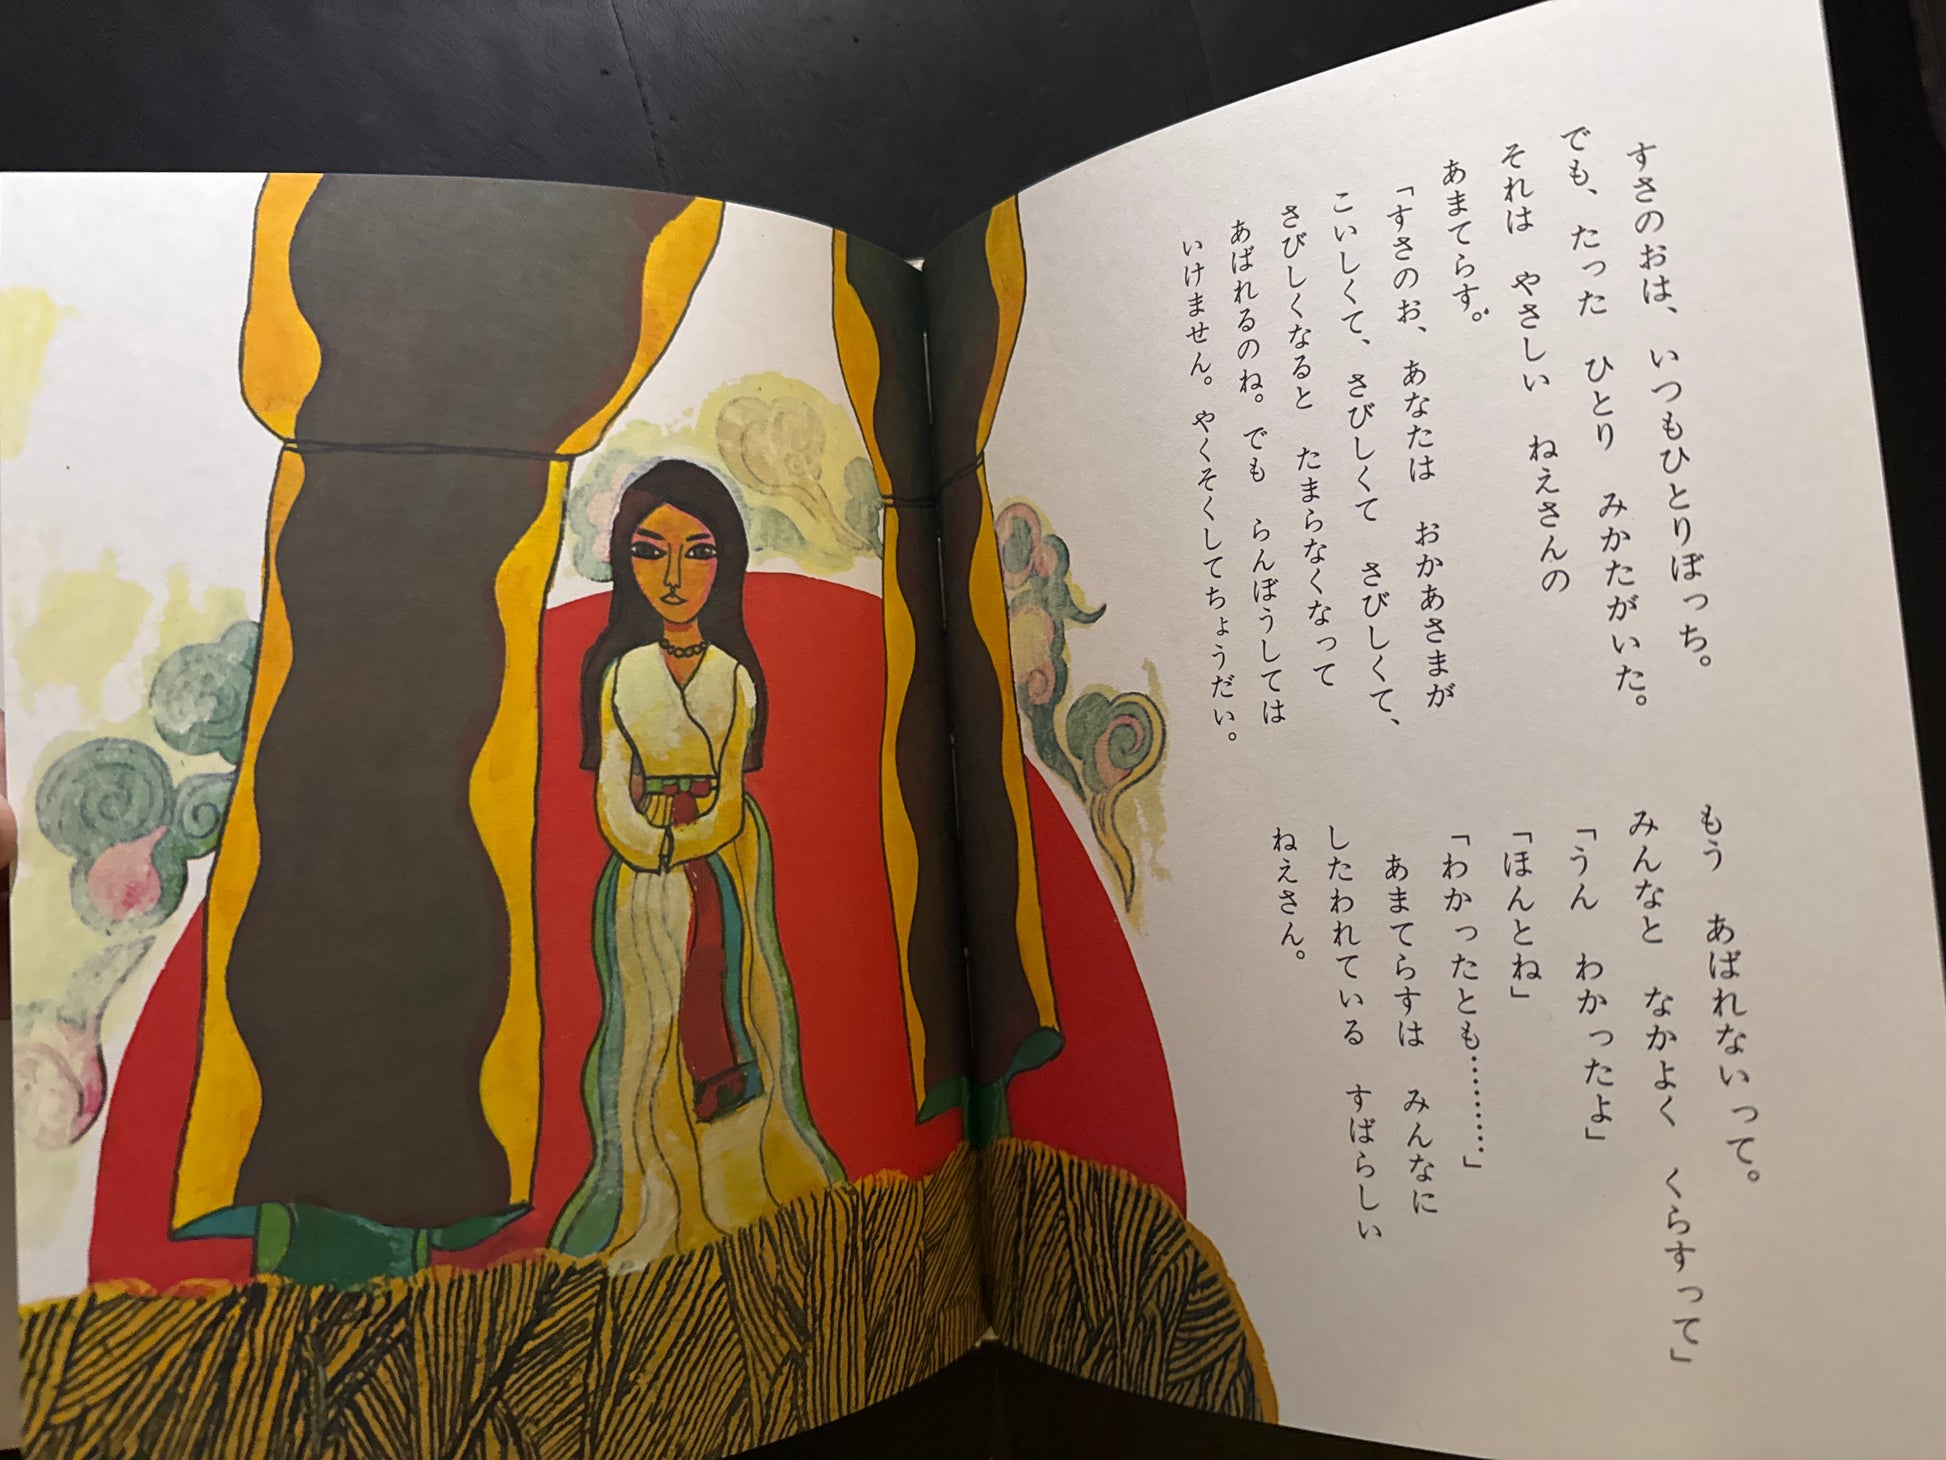 すさのおは、いつもひとりぼっち。
でも、たった ひとり みかたがいた。
それは やさしい ねえさんの
あまてらす。
「すさのお、あなたは おかあさまが
こいしくて、さびしくて さびしくて、
さびしくなると たまらなくなって
あばれるのね。でも らんぼうしては
いけません。やくそくしてちょうだい。
もう あばれないって。
みんなと なかよく くらすって」
「うん わかったよ」
「ほんとね」
「わかったとも…………」
あまてらすは みんなに
したわれている すばらしい
ねえさん。